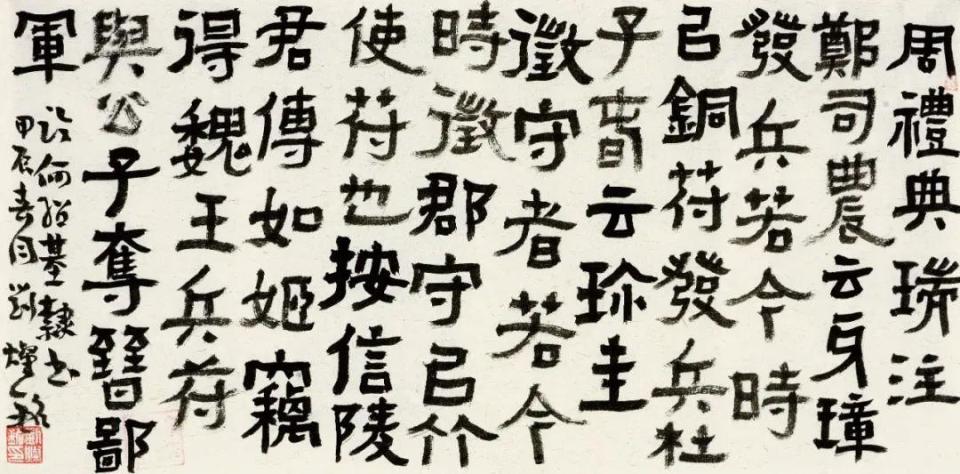 周禮典瑞注
鄭司農云牙璋
發兵若今時
㠯銅苻發兵杜
子春云珍圭
徵守者若今
時徵郡守㠯竹
使苻也按信陵
君傳如姬竊
得魏王兵苻
與公子奪晉鄙
軍
臨何紹基隸書
甲辰春月劉